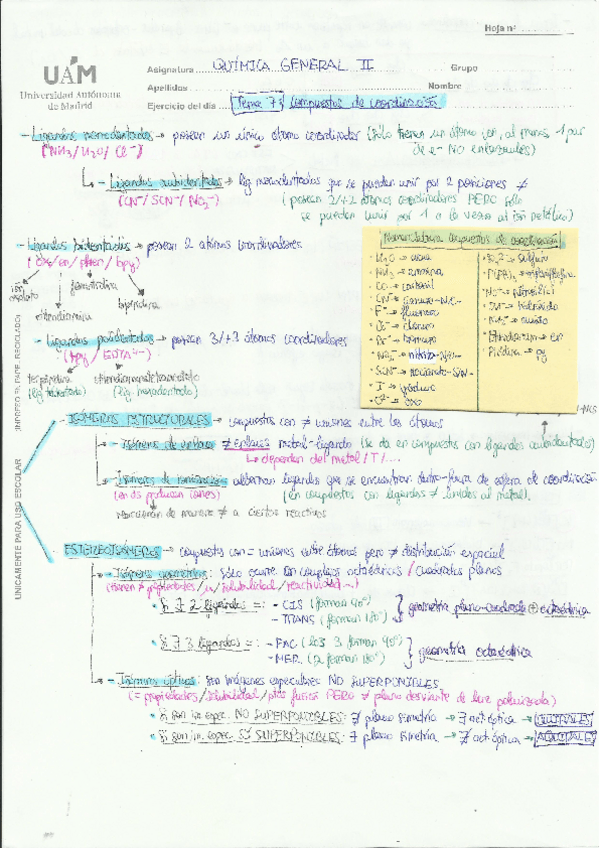 Hoja nº
UAM
Universidad Autónoma
de Madrid
Asignatura QUÍMICA GENERAL II Grupo
Apellidos Nombre
Ejercicio del día Tema 7: Compuestos de coordinación
- Ligandos monodentados → poseen un único átomo coordinador (sólo tienen un átomo con, al menos 1 par
(NH3/H2O/Cl-) de e- NO enlazantes)
- Ligandos ambidentados → lig monodentados que se pueden unir por 2 posiciones ≠
(CN-/SCN-/NO2-) (poseen 2/+2 átomos coordinadores PERO sólo
se pueden unir por 1 a la vez al ión metálico)
- Ligandos bidentados → poseen 2 átomos coordinadores
(ox/en/phen/bpy)
ión oxalato
fenantrolina
bipiridina
etilendiamina
- Ligandos polidentados → poseen 3/+3 átomos coordinadores
(tpy/EDTA4-)
terpiridina
(lig tridentado) (lig. hexadentado)
Nomenclatura compuestos de coordinación
· H2O → acua
· NH3 → ammina
· CO → carbonil
· F- → fluoruro
· Cl- → cloruro
· Br- → bromuro
· I- → yoduro
· O2- → oxo
· Etilendiamina → en
· Piridina → py
UNICAMENTE PARA USO ESCOLAR
- ISÓMEROS ESTRUCTURALES → compuestos con ≠ uniones entre los átomos
- Isómeros de enlace: ≠ enlaces metal-ligando (se da en compuestos con ligandos ambidentados)
↳ dependen del metal/T/...
- Isómeros de ionización: alternan ligandos que se encuentran dentro-fuera de esfera de coordinación
(en dis producen iones) (en compuestos con ligandos ≠ unidos al metal).
reaccionan de manera ≠ a ciertos reactivos
- ESTEREOISÓMEROS → compuestos con = uniones entre átomos pero ≠ distribución espacial
- Isómeros geométricos: sólo ocurre en complejos octaédricos / cuadrados planos
(tienen ≠ propiedades/μ/solubilidad/reactividad...)
· Si ∃ 2 ligandos =: - CIS (forman 90°)
- TRANS (forman 180°) } geometría plano-cuadrada + octaédrica
· Si ∃ 3 ligandos =: - FAC (los 3 forman 90°)
- MER (2 forman 180°) } geometría octaédrica
- Isómeros ópticos: son imágenes especulares NO SUPERPONIBLES
(= propiedades/solubilidad/ptos fusión PERO ≠ plano desviante de luz polarizada)
· Si son im. espec. NO SUPERPONIBLES: ∄ plano simetría → ∃ act óptica → QUIRALES
· Si son im. espec. SÍ SUPERPONIBLES: ∃ plano simetría → ∄ act óptica → AQUIRALES